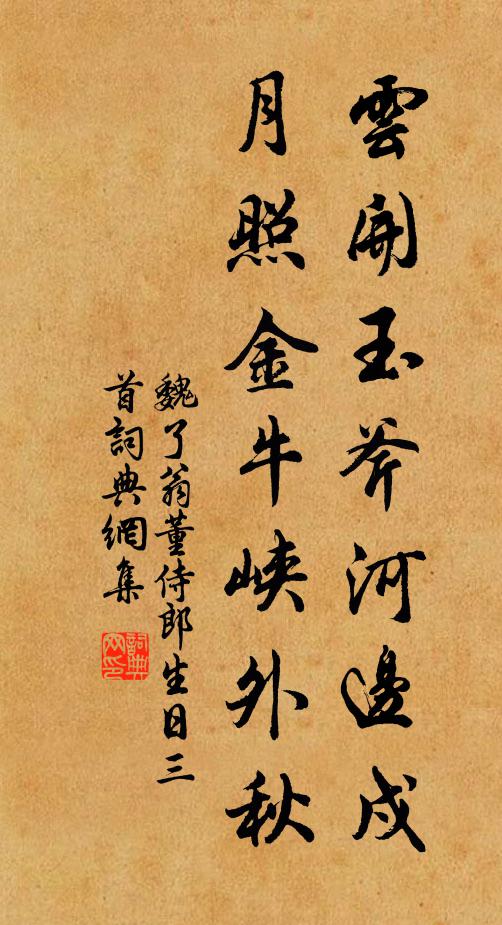 雲開玉斧河邊戍
月照金牛峽外秋
魏了翁董侍郎生日三
首詞典網集
詞典網印